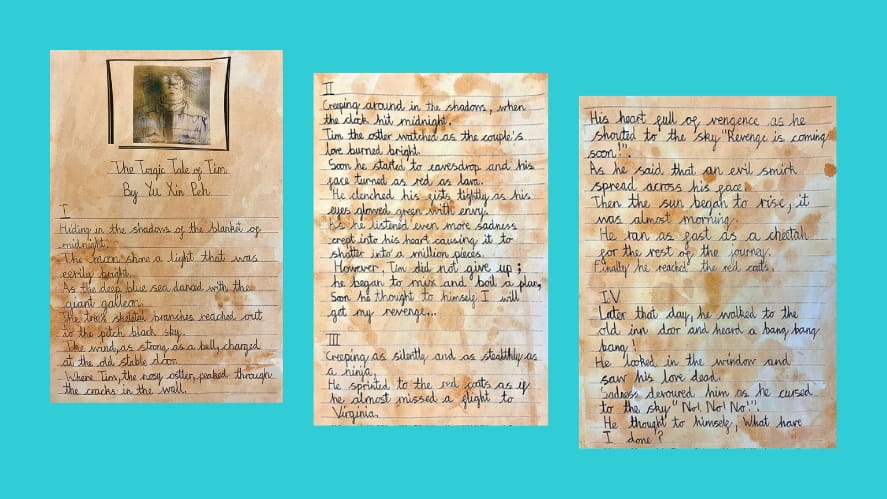 The Tragic Tale of Tim
By Yu Xin Peh
I
Hiding in the shadows of the blanket of
midnight.
The moon shone a light that was
eerily bright.
As the deep blue sea danced with the
giant galleon.
The trees skeletal branches reached out
to the pitch black sky.
The wind, as strong as a bull, charged
at the old stable door.
Where Tim, the nosy ostler, peaked through
the cracks in the wall.
II
Creeping around in the shadows, when
the clock hit midnight.
Tim the ostler watched as the couple's
love burned bright.
Soon he started to eavesdrop and his
face turned as red as lava.
He clenched his fists tightly as his
eyes glowed green with envy.
As he listened even more sadness
crept into his heart causing it to
shatter into a million pieces.
However, Tim did not give up;
he began to mix and boil a plan,
Soon he thought to himself I will
get my revenge...
III
Creeping as silently and as stealthily as
a ninja.
He sprinted to the red coats as if
he almost missed a flight to
Virginia.
His heart full of vengence as he
shouted to the sky "Revenge is coming
soon!".
As he said that an evil smirk
spread across his face.
Then the sun began to rise, it
was almost morning.
He ran as fast as a cheetah
for the rest of the journey.
Finally he reached the red coats.
IV
Later that day, he walked to the
old inn door and heard a bang bang
bang!
He looked in the window and
saw his love dead.
Sadness devoured him as he cursed
to the sky "No! No! No!".
He thought to himself, What have
I done?